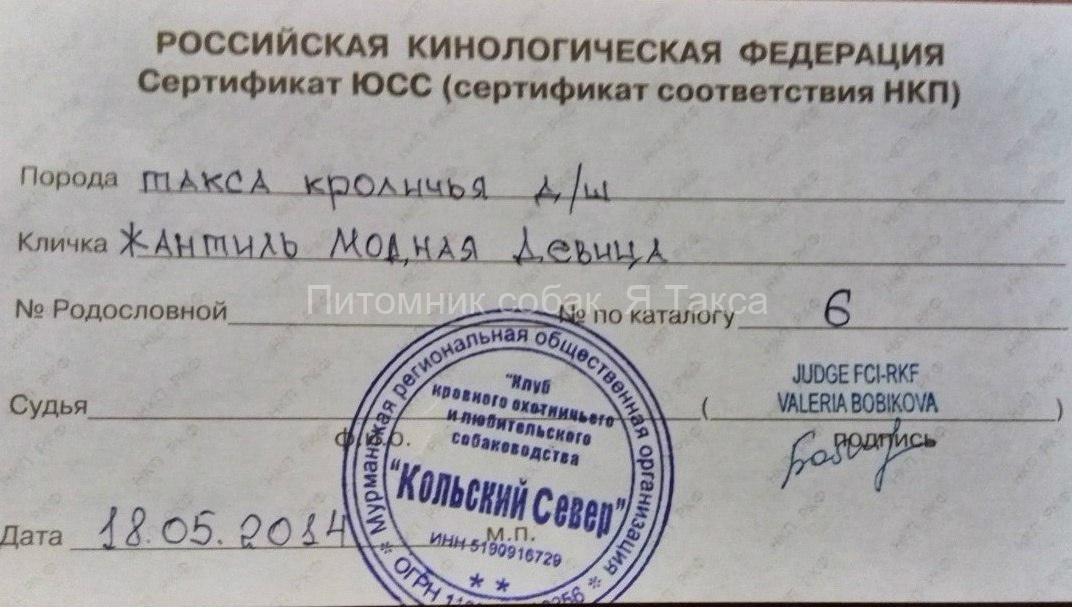 РОССИЙСКАЯ КИНОЛОГИЧЕСКАЯ ФЕДЕРАЦИЯ
Сертификат ЮСС (сертификат соответствия НКП)
Порода такса кроличья д/ш
Кличка Жантиль Модная Девица
Питомник собак Я Такса
№ Родословной № по каталогу 6
Судья ( JUDGE FCI-RKF
VALERIA BOBIKOVA )
ф.и.о. подпись
Дата 18.05.2014 м.п.
Мурманская региональная общественная организация
"Клуб
кровного охотничьего
и любительского
собаководства
"Кольский Север"
ИНН 5190916729
ОГРН